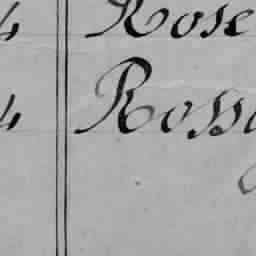 4 Rose
4 Rossa